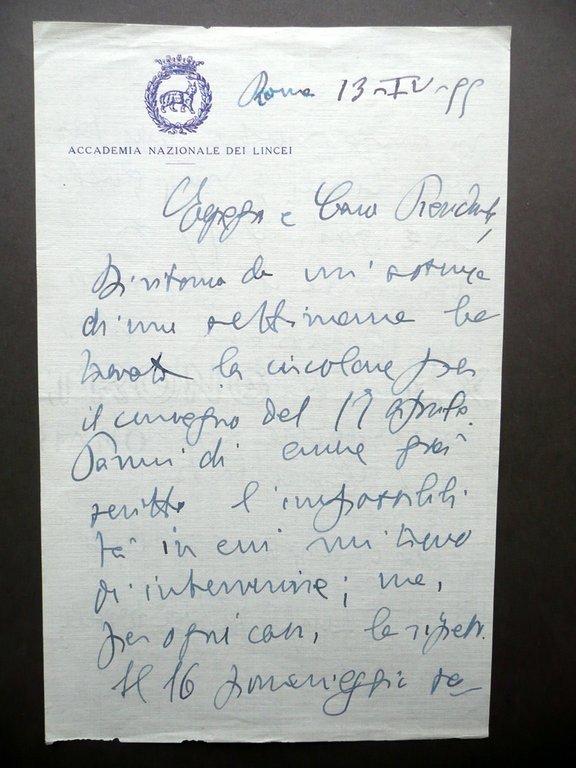 Roma 13-IV-55
ACCADEMIA NAZIONALE DEI LINCEI
Egregio e Caro
Di ritorno da un'assenza
di una settimana ho
trovato la circolare per
il convegno del 17 aprile.
Parmi di avere già
scritto l'impossibili
tà in cui mi trovo
di intervenire; ma,
per ogni caso, lo ripeto.
Il 16 pomeriggio